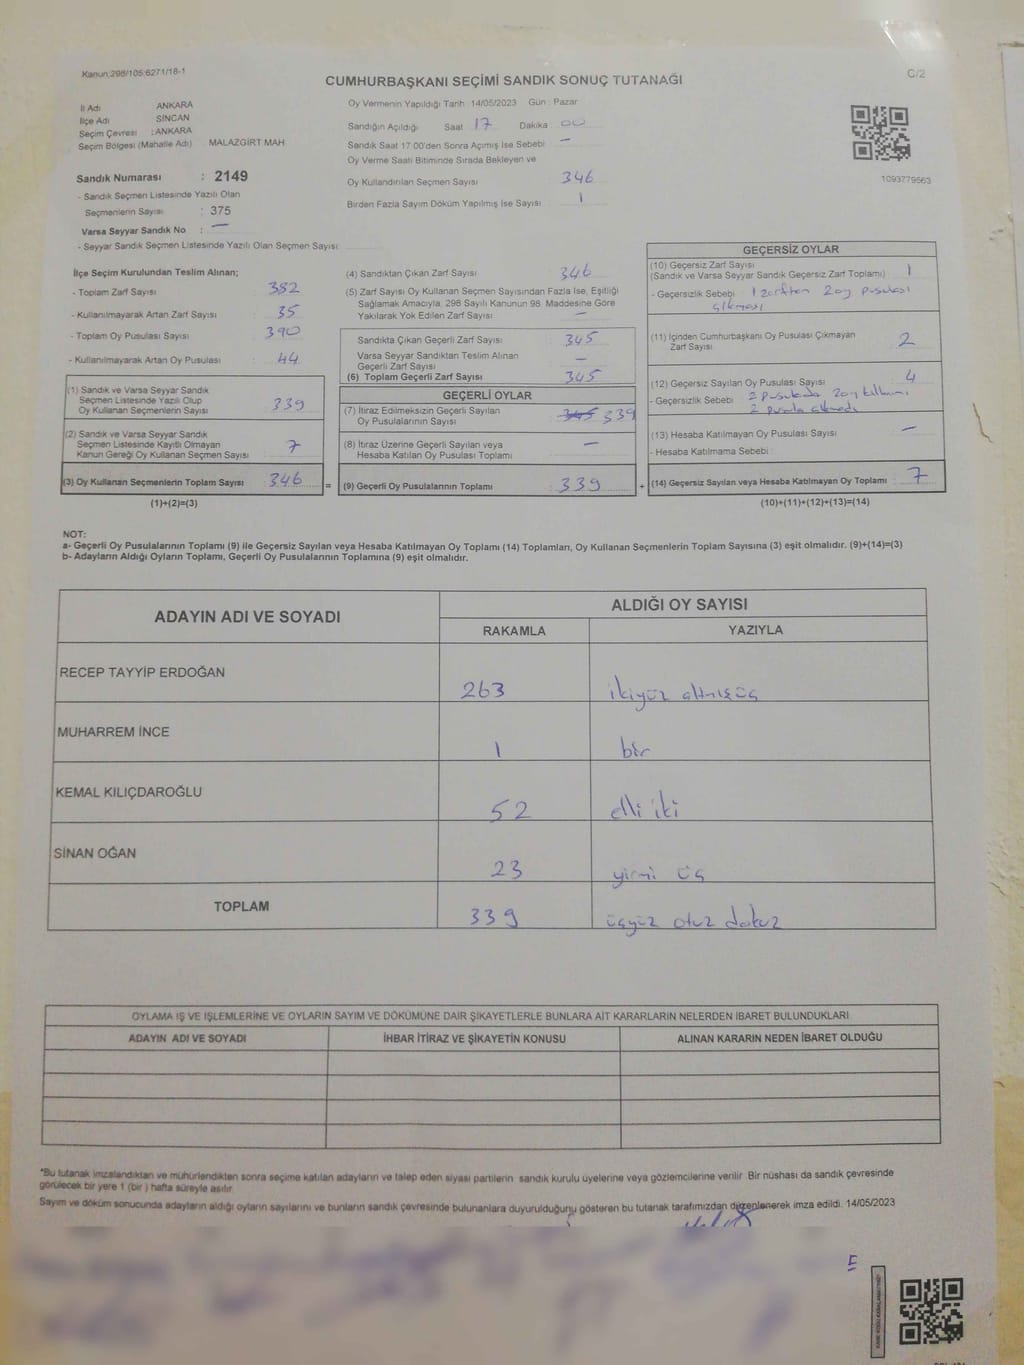 Kanun:298/105;6271/18-1
CUMHURBAŞKANI SEÇİMİ SANDIK SONUÇ TUTANAĞI
C/2
İl Adı ANKARA
İlçe Adı SİNCAN
Seçim Çevresi : ANKARA
Seçim Bölgesi (Mahalle Adı) MALAZGİRT MAH
Sandık Numarası : 2149
- Sandık Seçmen Listesinde Yazılı Olan
Seçmenlerin Sayısı : 375
Varsa Seyyar Sandık No : —
- Seyyar Sandık Seçmen Listesinde Yazılı Olan Seçmen Sayısı
Oy Vermenin Yapıldığı Tarih 14/05/2023 Gün : Pazar
Sandığın Açıldığı Saat 17 Dakika 00
Sandık Saat 17:00'den Sonra Açımış İse Sebebi —
Oy Verme Saati Bitiminde Sırada Bekleyen ve
Oy Kullandırılan Seçmen Sayısı 346
Birden Fazla Sayım Döküm Yapılmış İse Sayısı 1
1093779563
İlçe Seçim Kurulundan Teslim Alınan;
- Toplam Zarf Sayısı 382
- Kullanılmayarak Artan Zarf Sayısı 35
- Toplam Oy Pusulası Sayısı 390
- Kullanılmayarak Artan Oy Pusulası 44
(1) Sandık ve Varsa Seyyar Sandık
Seçmen Listesinde Yazılı Olup
Oy Kullanan Seçmenlerin Sayısı 339
(2) Sandık ve Varsa Seyyar Sandık
Seçmen Listesinde Kayıtlı Olmayan
Kanun Gereği Oy Kullanan Seçmen Sayısı 7
(3) Oy Kullanan Seçmenlerin Toplam Sayısı 346
(1)+(2)=(3)
(4) Sandıktan Çıkan Zarf Sayısı 346
(5) Zarf Sayısı Oy Kullanan Seçmen Sayısından Fazla İse, Eşitliği
Sağlamak Amacıyla, 298 Sayılı Kanunun 98. Maddesine Göre
Yakılarak Yok Edilen Zarf Sayısı —
Sandıkta Çıkan Geçerli Zarf Sayısı 345
Varsa Seyyar Sandıktan Teslim Alınan
Geçerli Zarf Sayısı —
(6) Toplam Geçerli Zarf Sayısı 345
GEÇERLİ OYLAR
(7) İtiraz Edilmeksizin Geçerli Sayılan
Oy Pusulalarının Sayısı 345 339
(8) İtiraz Üzerine Geçerli Sayılan veya
Hesaba Katılan Oy Pusulası Toplamı —
= (9) Geçerli Oy Pusulalarının Toplamı 339 +
GEÇERSİZ OYLAR
(10) Geçersiz Zarf Sayısı
(Sandık ve Varsa Seyyar Sandık Geçersiz Zarf Toplamı) 1
- Geçersizlik Sebebi 1 zarftan 2 oy pusulası
çıkması
(11) İçinden Cumhurbaşkanı Oy Pusulası Çıkmayan
Zarf Sayısı 2
(12) Geçersiz Sayılan Oy Pusulası Sayısı 4
- Geçersizlik Sebebi 2 pusulada 2 oy
2 pusula
(13) Hesaba Katılmayan Oy Pusulası Sayısı —
- Hesaba Katılmama Sebebi
(14) Geçersiz Sayılan veya Hesaba Katılmayan Oy Toplamı 7
(10)+(11)+(12)+(13)=(14)
NOT:
a- Geçerli Oy Pusulalarının Toplamı (9) ile Geçersiz Sayılan veya Hesaba Katılmayan Oy Toplamı (14) Toplamları, Oy Kullanan Seçmenlerin Toplam Sayısına (3) eşit olmalıdır. (9)+(14)=(3)
b- Adayların Aldığı Oyların Toplamı, Geçerli Oy Pusulalarının Toplamına (9) eşit olmalıdır.
ADAYIN ADI VE SOYADI ALDIĞI OY SAYISI
RAKAMLA YAZIYLA
RECEP TAYYİP ERDOĞAN 263 ikiyüz altmışüç
MUHARREM İNCE 1 bir
KEMAL KILIÇDAROĞLU 52 elli iki
SİNAN OĞAN 23 yirmi üç
TOPLAM 339 üçyüz otuz dokuz
OYLAMA İŞ VE İŞLEMLERİNE VE OYLARIN SAYIM VE DÖKÜMÜNE DAİR ŞİKAYETLERLE BUNLARA AİT KARARLARIN NELERDEN İBARET BULUNDUKLARI
ADAYIN ADI VE SOYADI İHBAR İTİRAZ VE ŞİKAYETİN KONUSU ALINAN KARARIN NEDEN İBARET OLDUĞU
*Bu tutanak imzalandıktan ve mühürlendikten sonra seçime katılan adayların ve talep eden siyasi partilerin sandık kurulu üyelerine veya gözlemcilerine verilir. Bir nüshası da sandık çevresinde
görülecek bir yere 1 (bir ) hafta süreyle asılır.
Sayım ve döküm sonucunda adayların aldığı oyların sayılarını ve bunların sandık çevresinde bulunanlara duyurulduğunu gösteren bu tutanak tarafımızdan düzenlenerek imza edildi. 14/05/2023